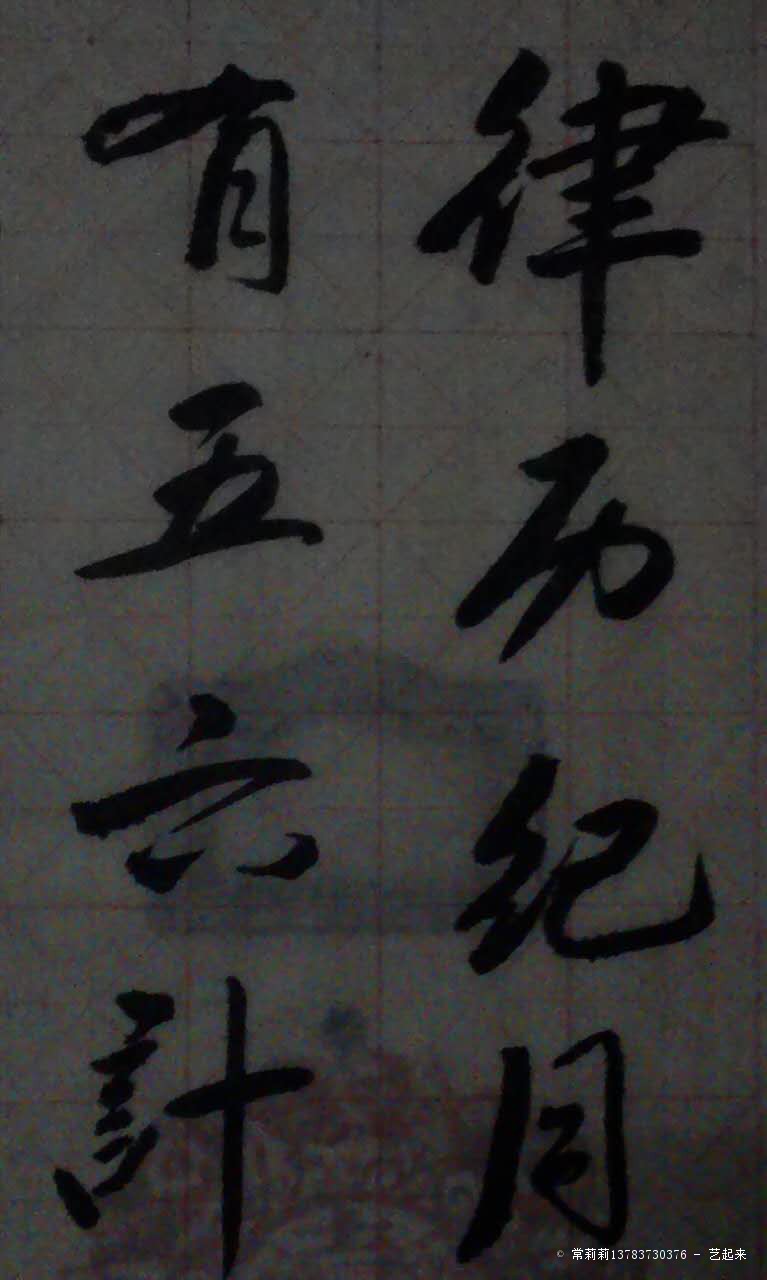 律历纪同
有五六計
© 常莉莉13783730376 - 艺起来